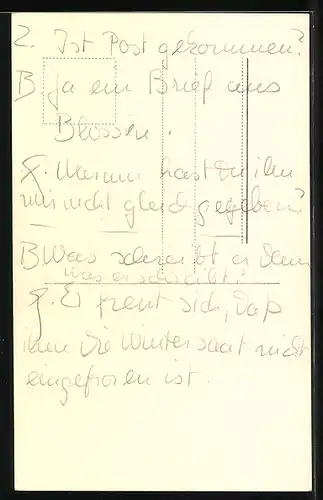 2. Ist Post gekommen?
B Ja ein Brief aus
Blossen.
Z. Warum hast Du ihn
mir nicht gleich gegeben?
B Was schreibt er denn
was er schreibt?
Z. Er freut sich, daß
ihm die Wintersaat nicht
eingefroren ist.